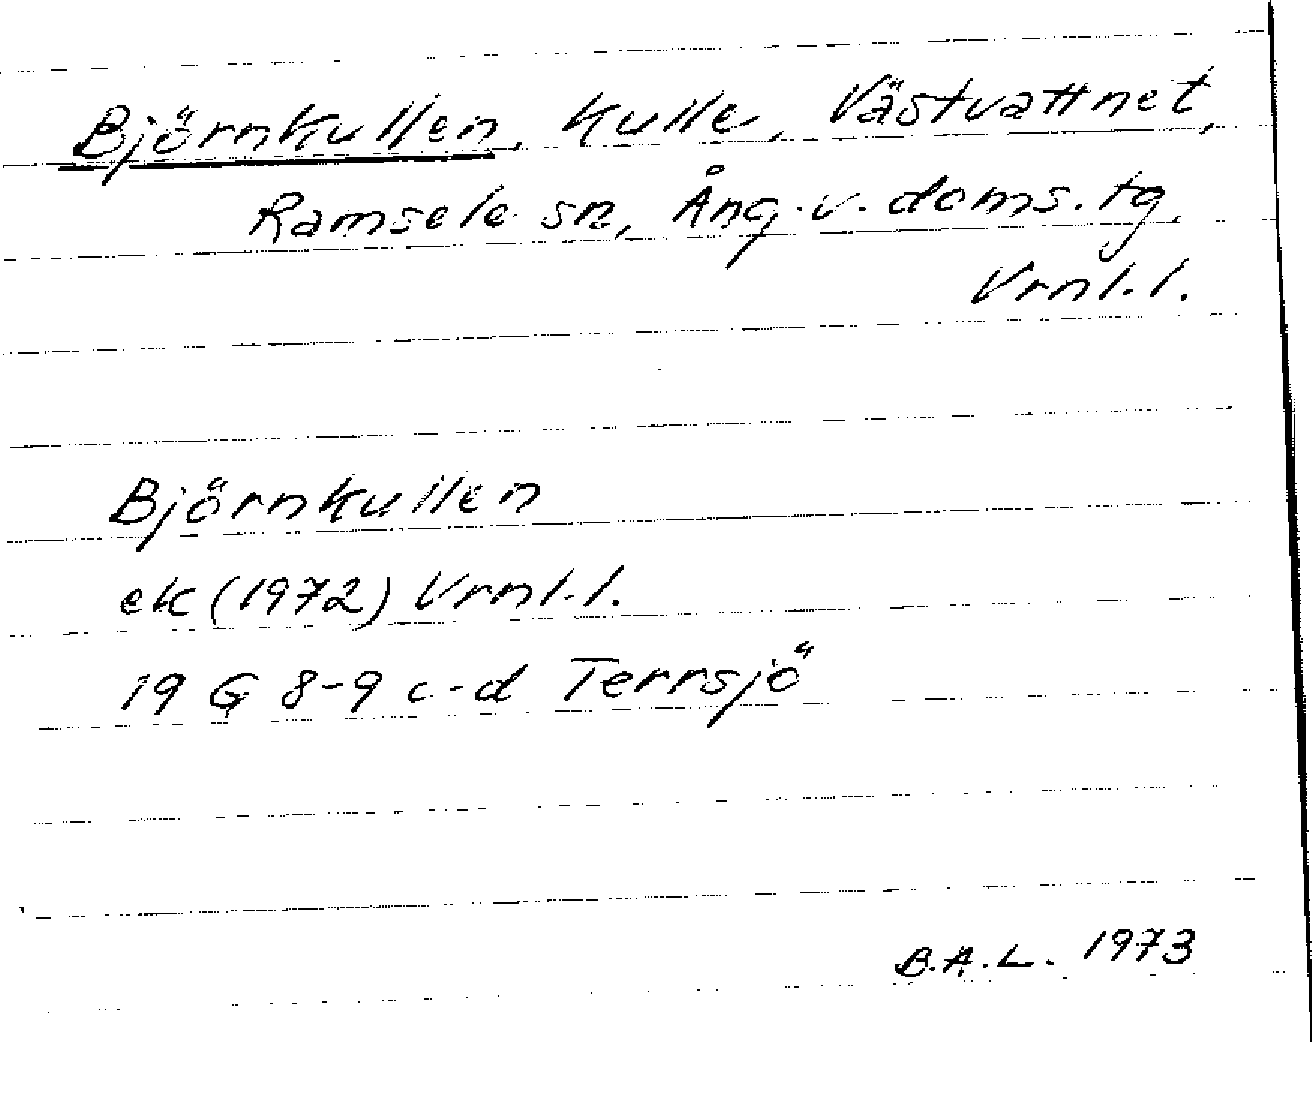 Björnkullen, kulle, Västvattnet,
Ramsele sn, Ång.v.doms.tg.
Vrnl.l.
Björnkullen
ek (1972) Vrnl.l.
19 G 8-9 c-d Terrsjö
B.A.L. 1973